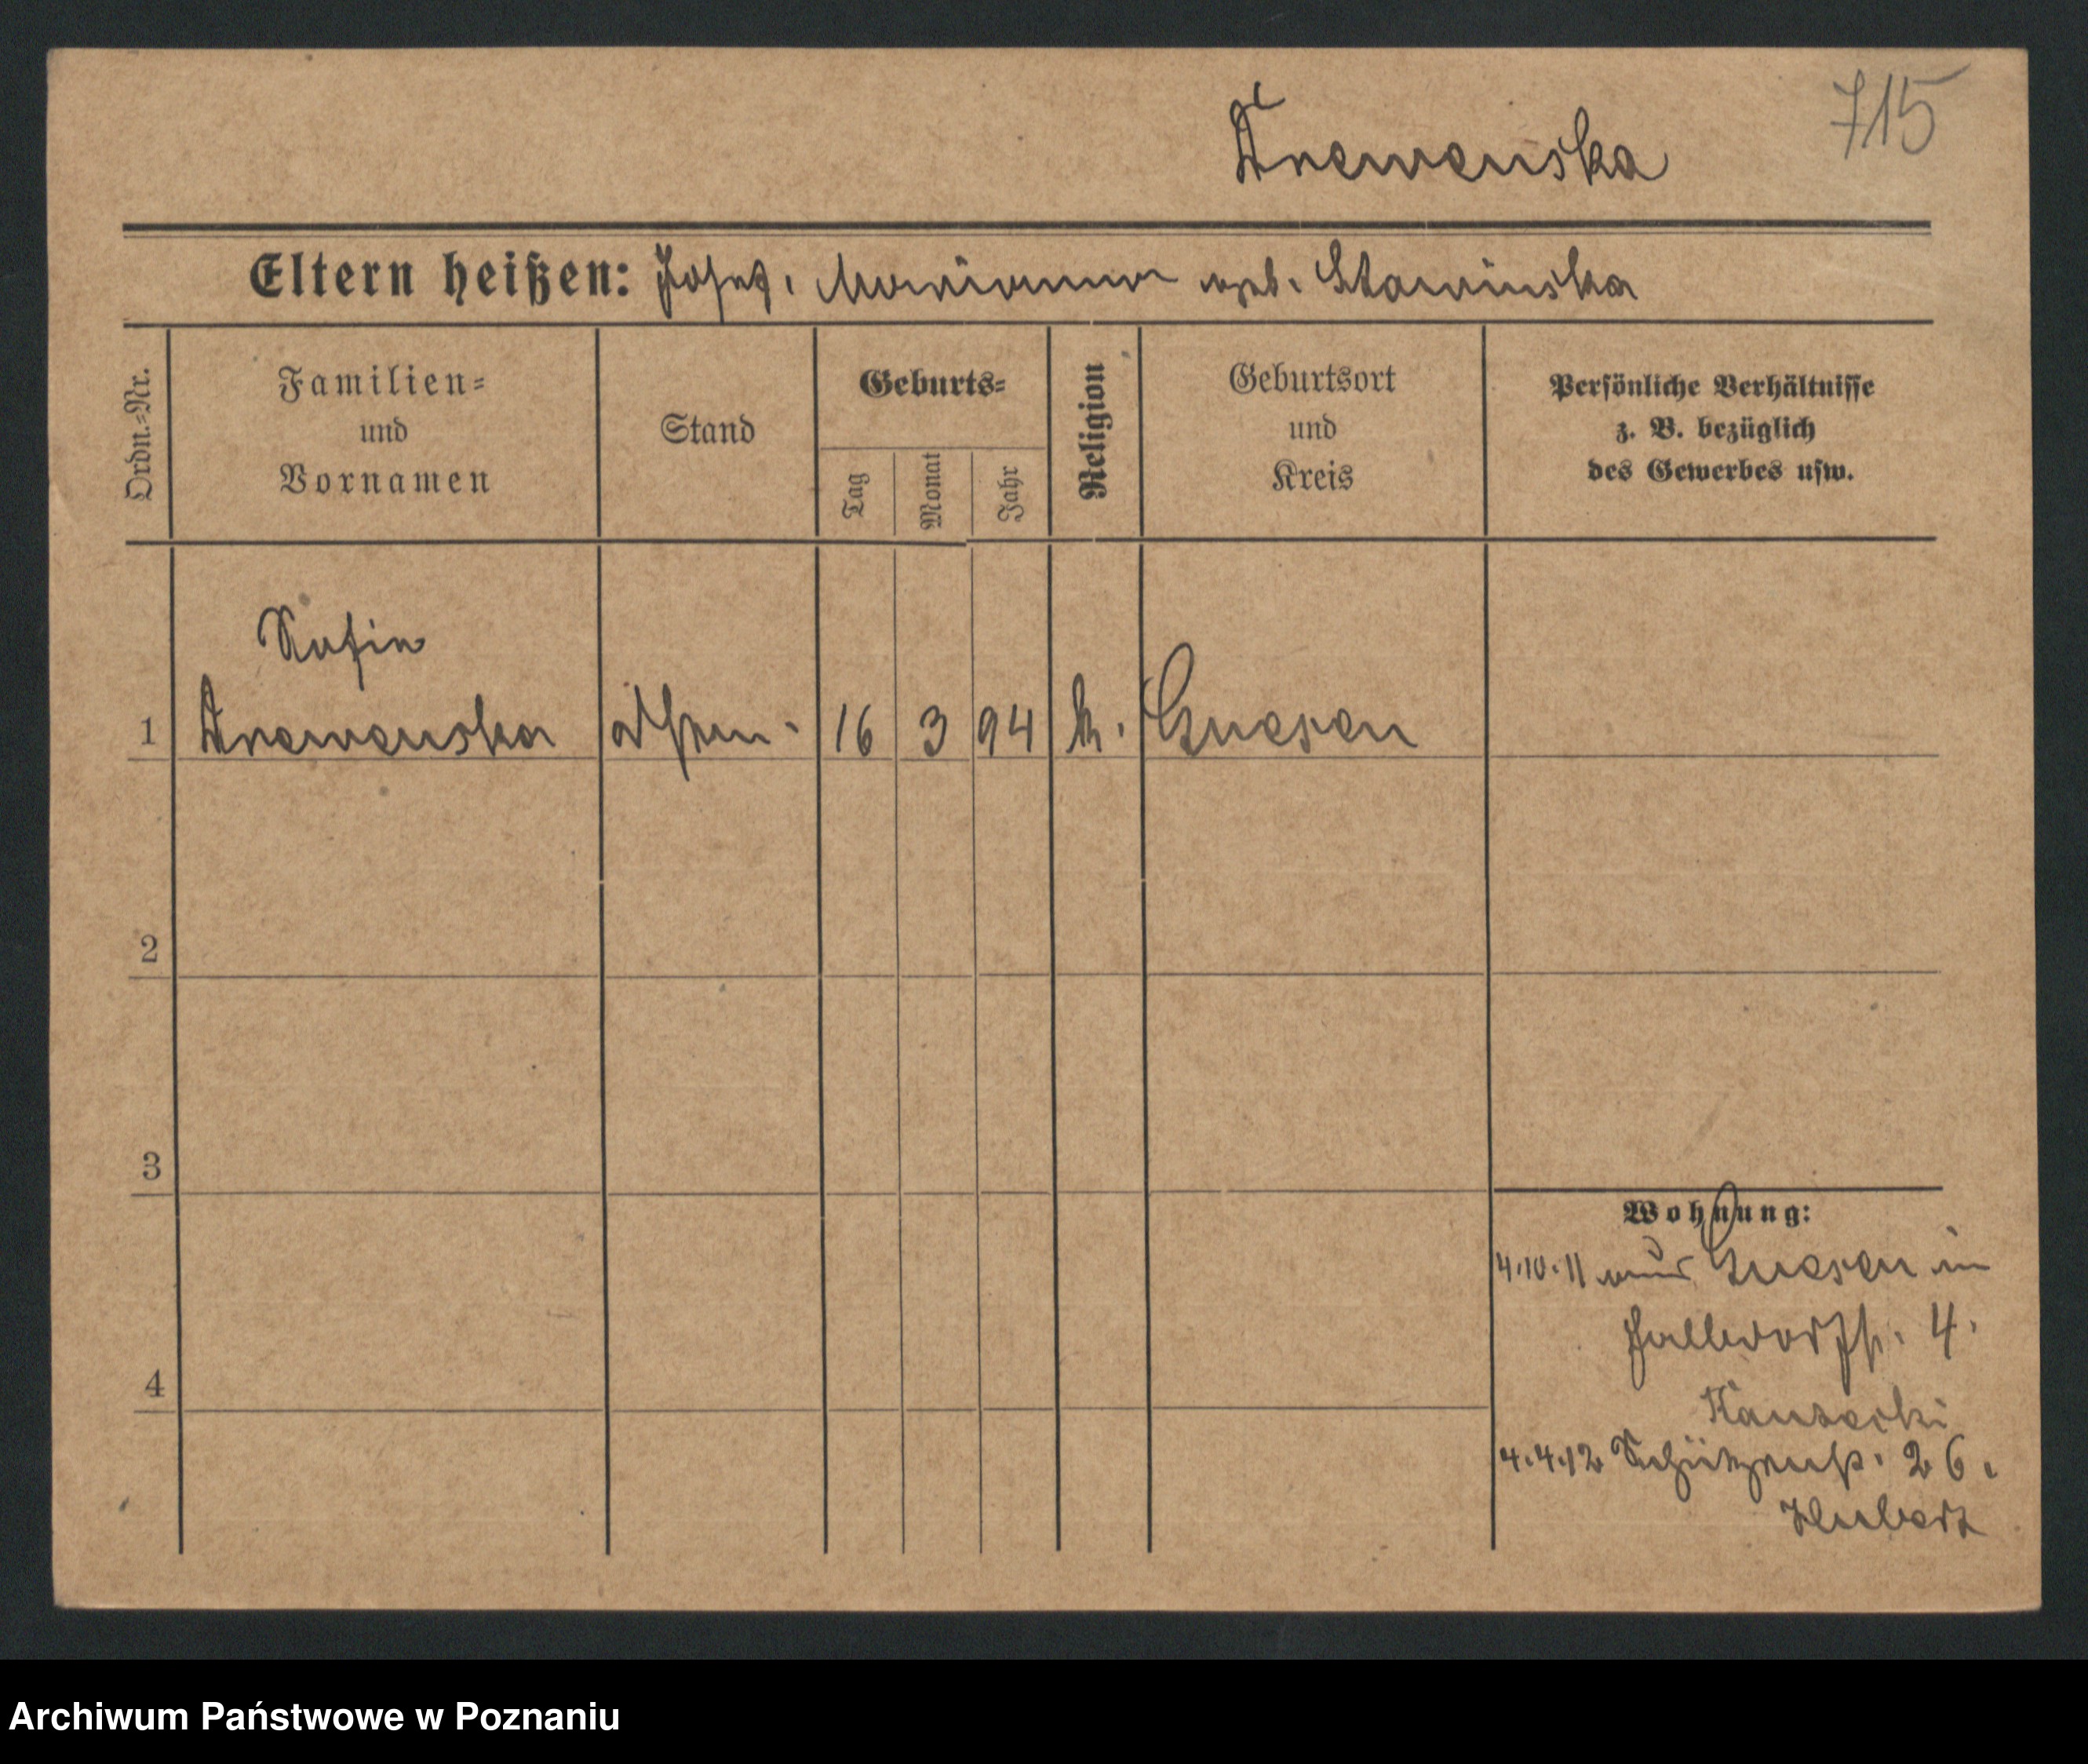 715
Drewenska
Eltern heißen: Josef, Marianna geb. Stawinska
Ordn.=Nr.
Familien=
und
Vornamen
Stand
Geburts=
Tag
Monat
Jahr
Religion
Geburtsort
und
Kreis
Persönliche Verhältnisse
z. B. bezüglich
des Gewerbes usw.
1
Drewenska
16 3 94 k. Gnesen
2
3
4
Wohnung:
4.10.11 aus Gnesen in
Halldorfstr. 4.
4.4.12 Schützenstr. 26.
Hubert
Archiwum Państwowe w Poznaniu